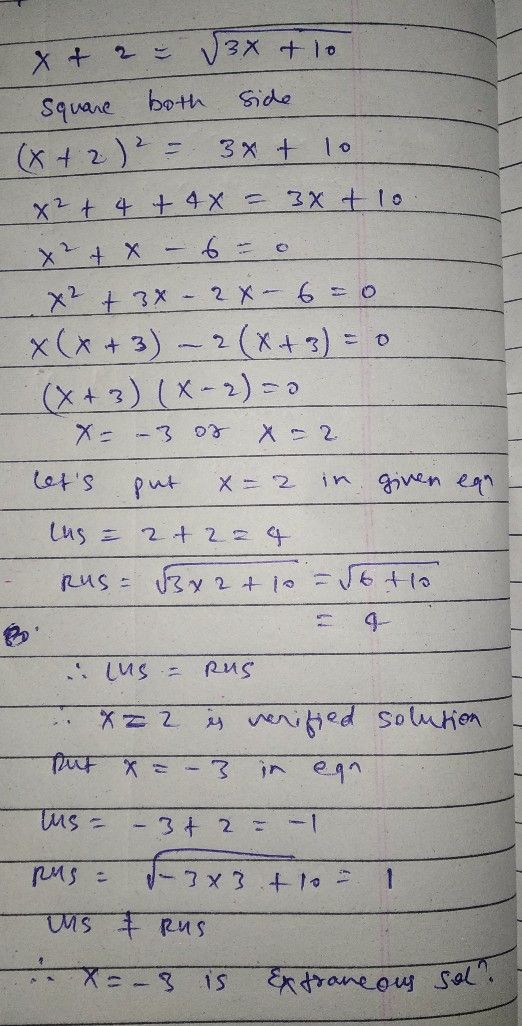 x + 2 = √3x + 10
Square both side
(x + 2)² = 3x + 10
x² + 4 + 4x = 3x + 10
x² + x - 6 = 0
x² + 3x - 2x - 6 = 0
x(x + 3) - 2(x + 3) = 0
(x + 3) (x - 2) = 0
x = -3 or x = 2
Let's put x = 2 in given eqn
LHS = 2 + 2 = 4
RHS = √3x2 + 10 = √6 + 10
= 4
∴ LHS = RHS
∴ x = 2 is verified solution
Put x = -3 in eqn
LHS = -3 + 2 = -1
RHS = √-3x3 + 10 = 1
LHS ≠ RHS
∴ x = -3 is Extraneous solⁿ.